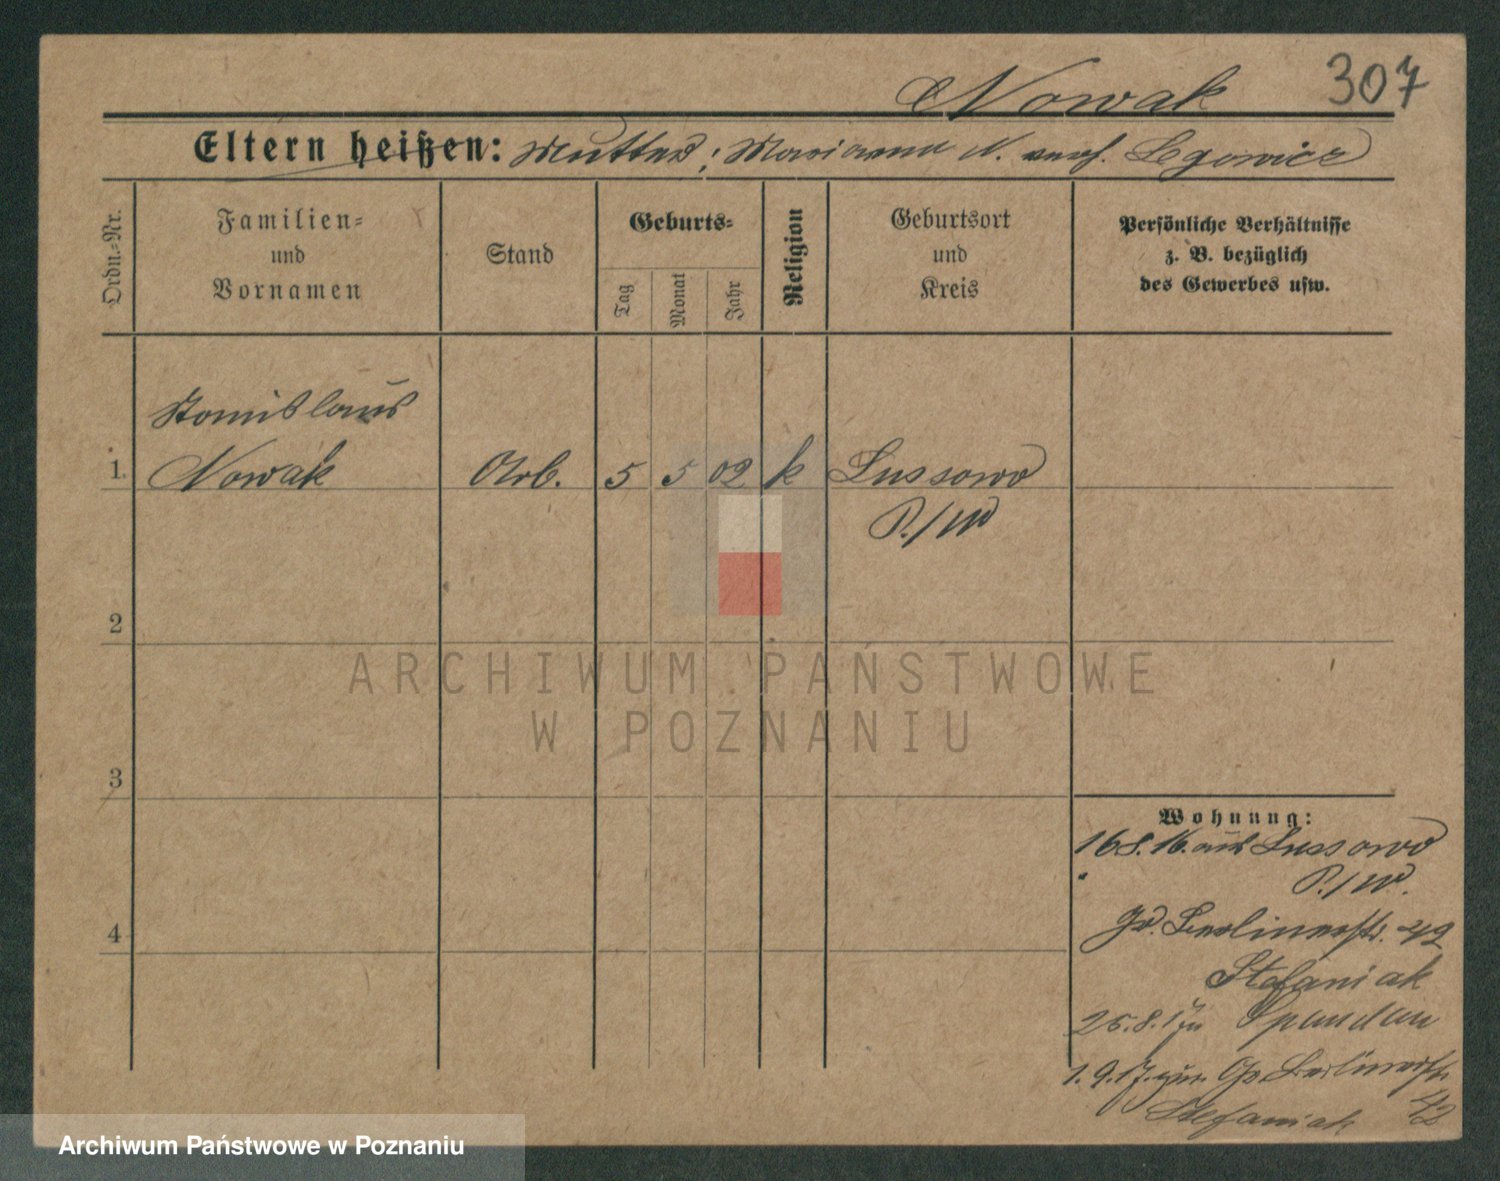 Nowak 307
Eltern heißen: Mutter: Marianna N. verh. Legowicz
Ordn.-Nr.
Familien-
und
Vornamen
Stand
Geburts-
Tag
Monat
Jahr
Religion
Geburtsort
und
Kreis
Persönliche Verhältnisse
z. B. bezüglich
des Gewerbes usw.
Stanislaus
1. Nowak Arb. 5 5 02 k Lussowo
P./W
2
3
4
ARCHIWUM PAŃSTWOWE
W POZNANIU
Wohnung:
16.8.16. aus Lussowo
P./W.
Gr. Berlinerstr. 42
Stefaniak
25.8.17 Spandau
1.9.17. zur. Gr Berlinerstr
Stefaniak 42
Archiwum Państwowe w Poznaniu